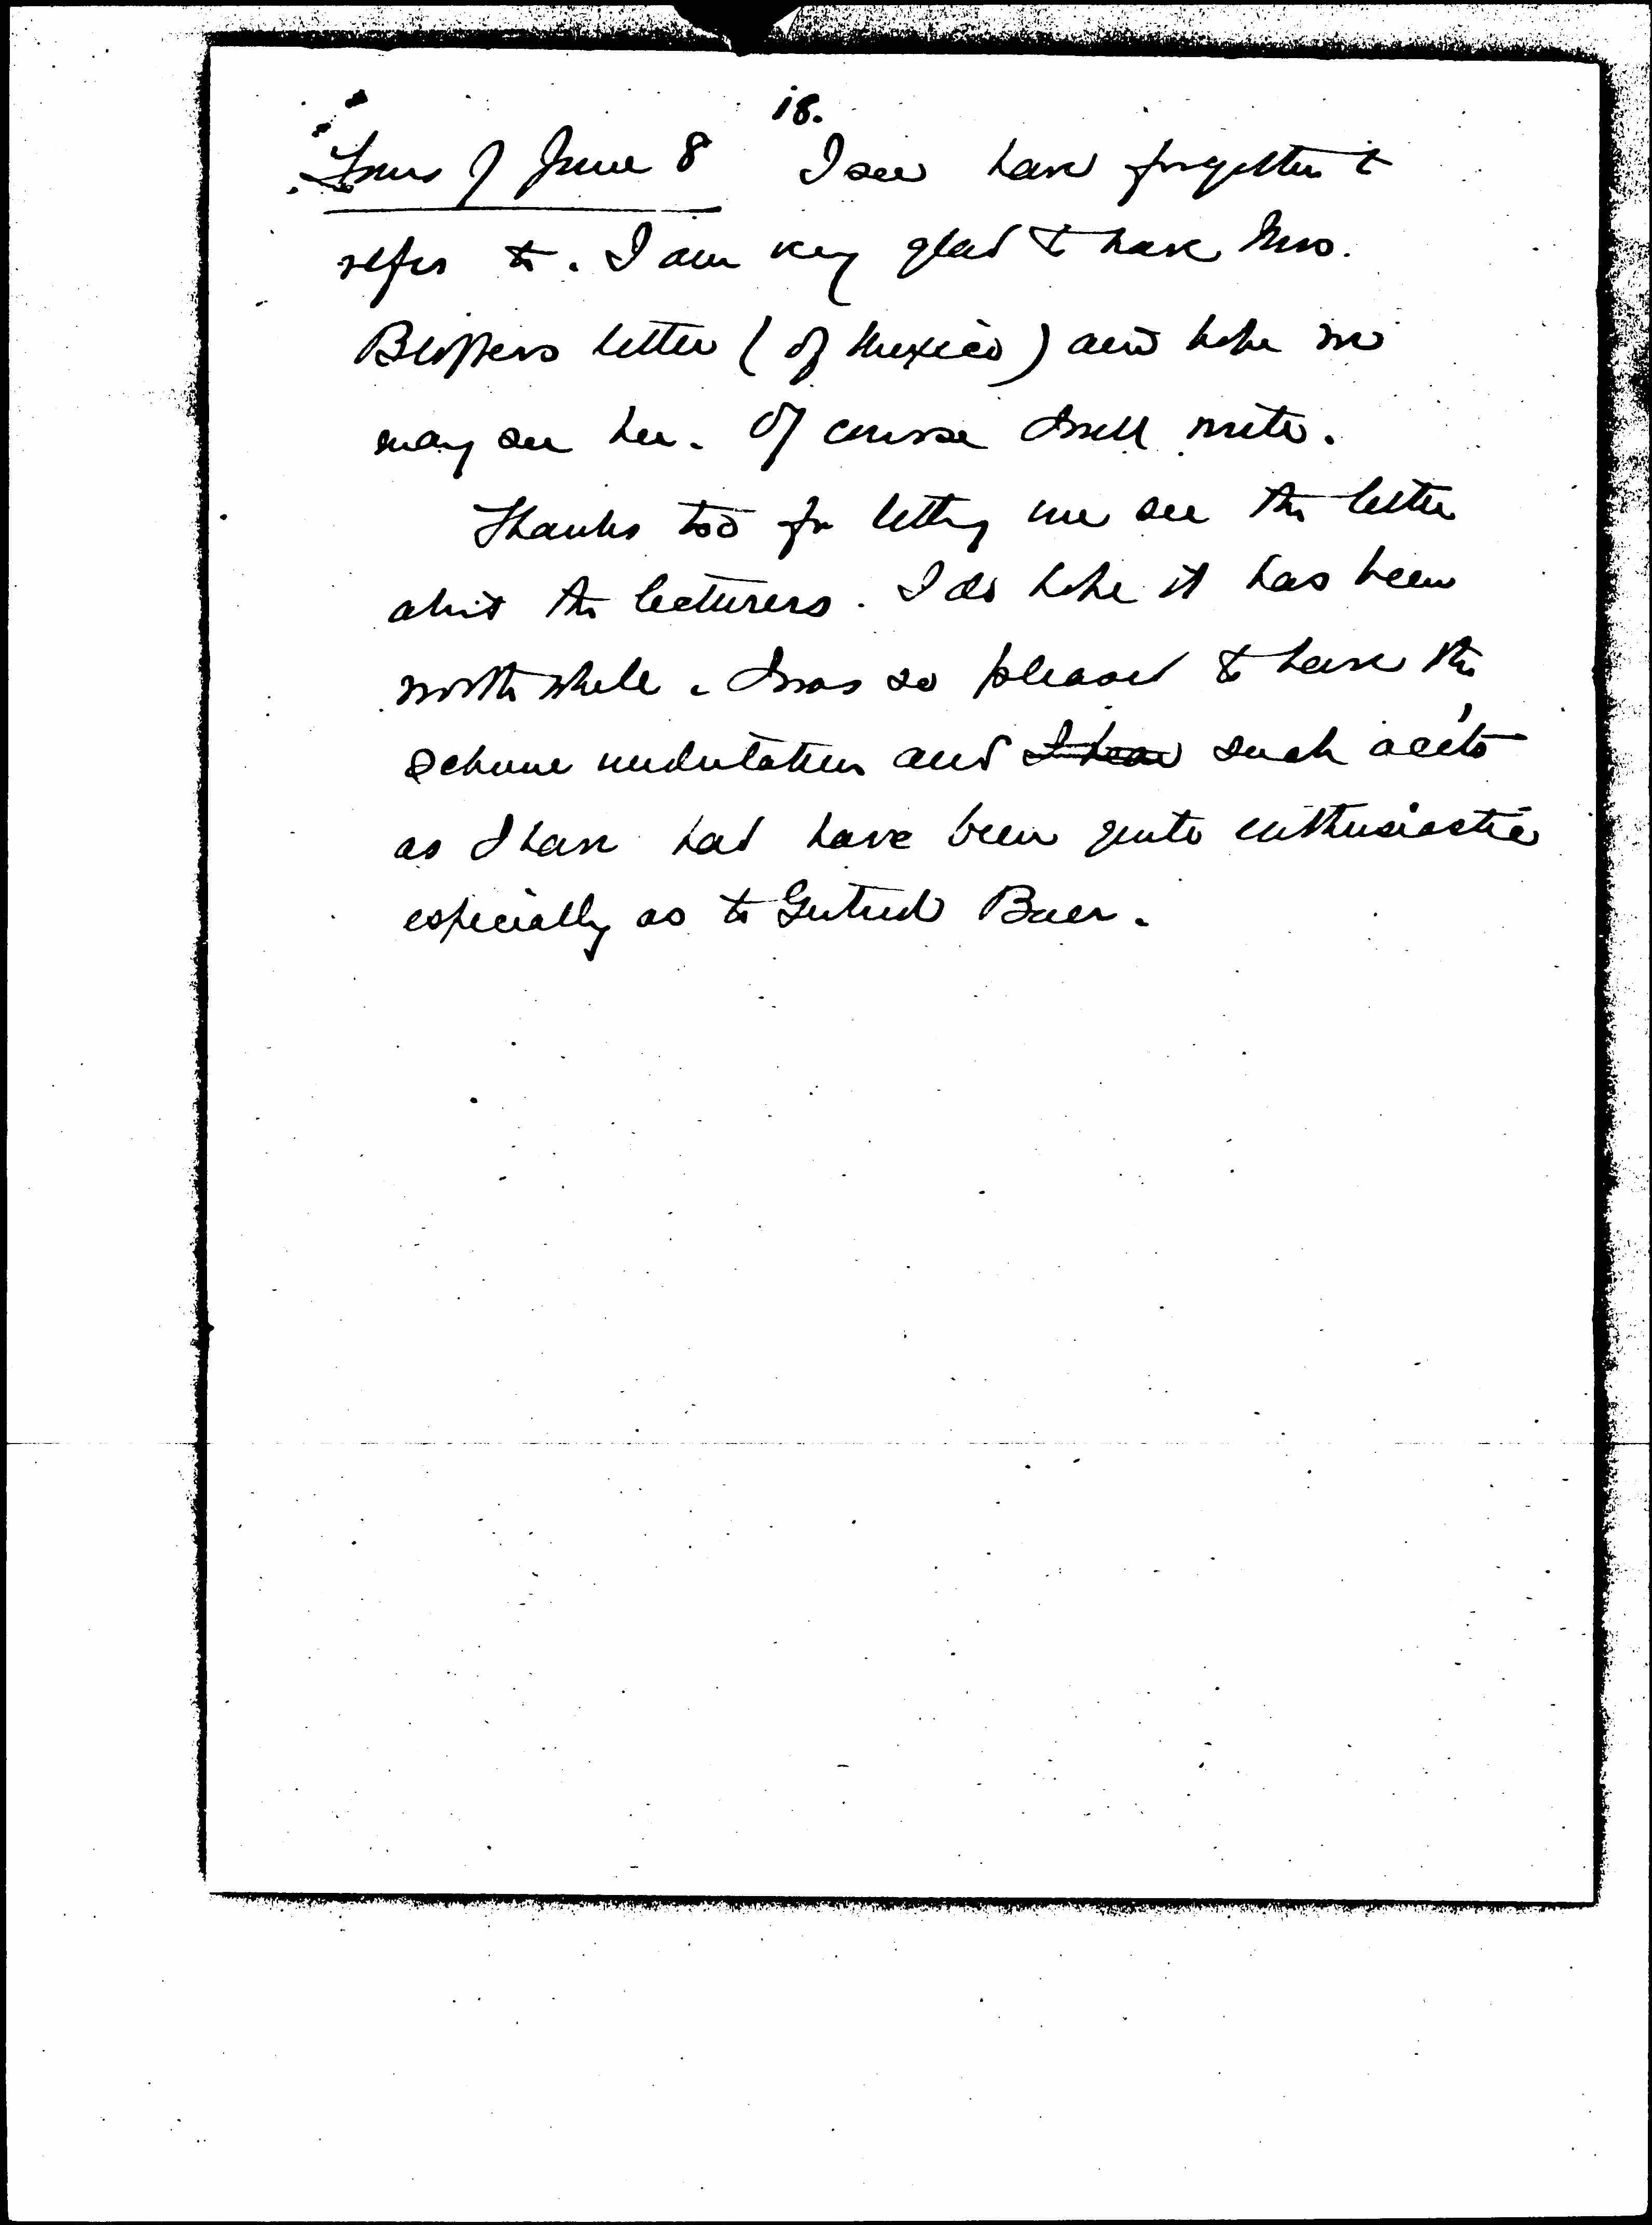 18.
Yours of June 8 I see have forgotten to
refer to. I am very glad to have Mrs.
letter (of Mexico) and hope we
may see her. Of course I will write.
Thanks too for letting me see the letter
about the lecturers. I do hope it has been
worth while. I was so pleased to have the
scheme and such acc'ts
as I have had have been quite enthusiastic
especially as to Gertrud Baer.